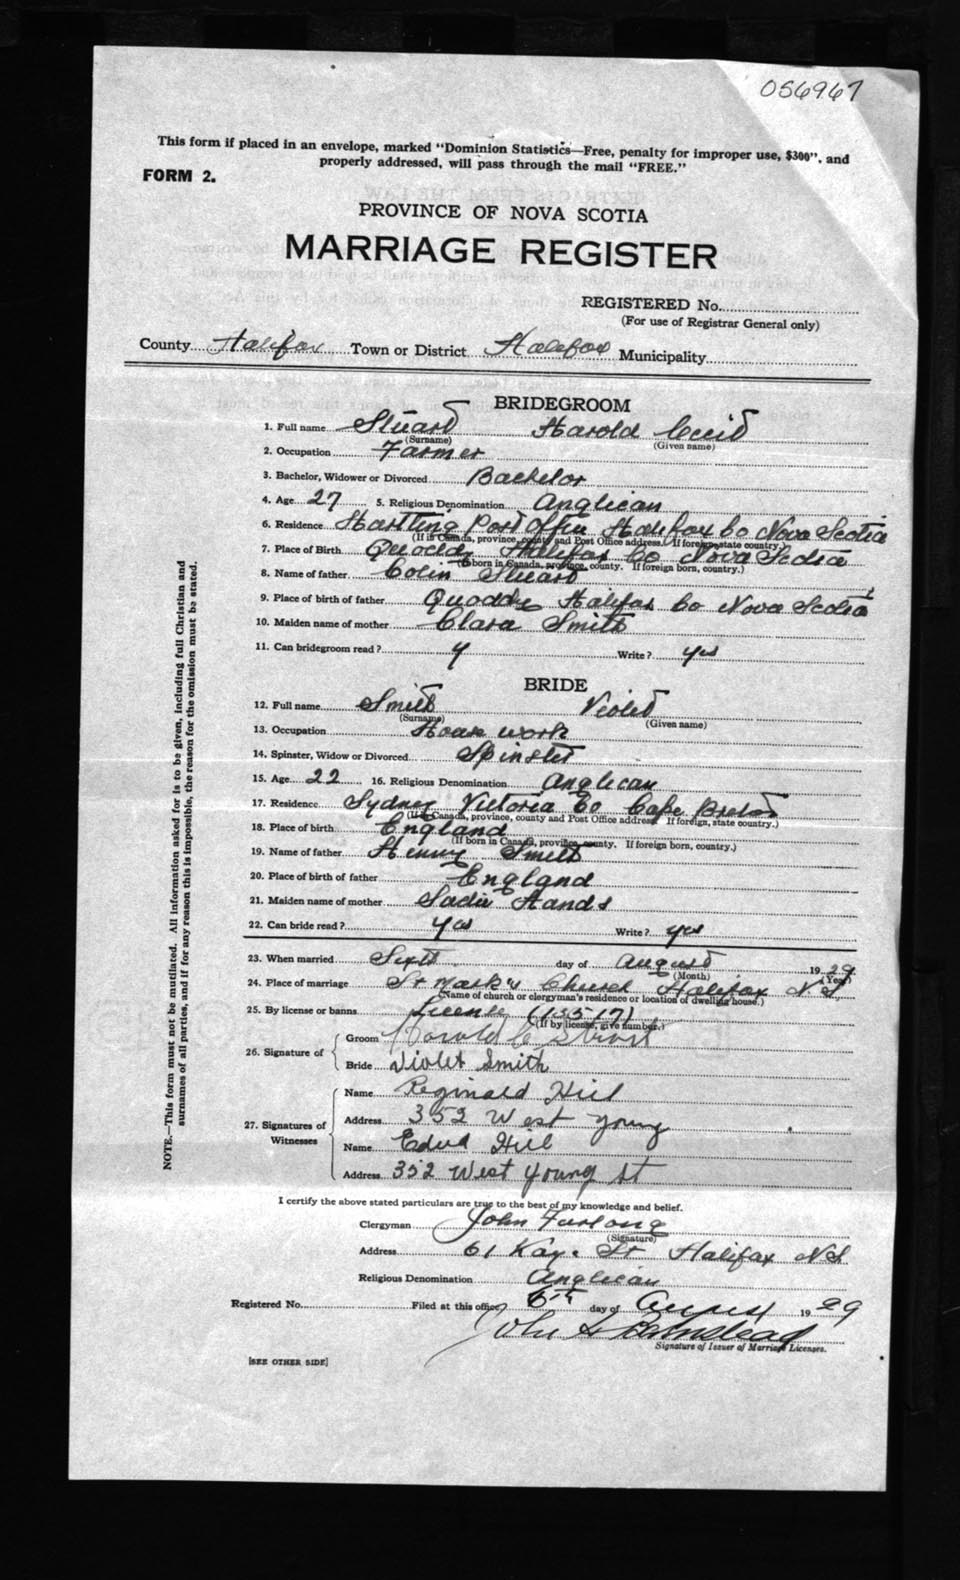 056967
This form if placed in an envelope, marked "Dominion Statistics—Free, penalty for improper use, $300", and
properly addressed, will pass through the mail "FREE."
FORM 2.
PROVINCE OF NOVA SCOTIA
MARRIAGE REGISTER
REGISTERED No.
(For use of Registrar General only)
County Halifax Town or District Halifax Municipality
BRIDEGROOM
1. Full name Stuart Harold Cecil
(Surname) (Given name)
2. Occupation Farmer
3. Bachelor, Widower or Divorced Bachelor
4. Age 27 5. Religious Denomination Anglican
6. Residence Hartling Post Office Halifax Co Nova Scotia
(If in Canada, province, county and Post Office address. If foreign, state country.)
7. Place of Birth Quoddy Halifax Co Nova Scotia
(If born in Canada, province, county. If foreign born, country.)
8. Name of father Colin Stuart
9. Place of birth of father Quoddy Halifax Co Nova Scotia
10. Maiden name of mother Clara Smith
11. Can bridegroom read? y Write? yes
BRIDE
12. Full name Smith Violet
(Surname) (Given name)
13. Occupation House work
14. Spinster, Widow or Divorced Spinster
15. Age 22 16. Religious Denomination Anglican
17. Residence Sydney Victoria Co Cape Breton
(If in Canada, province, county and Post Office address. If foreign, state country.)
18. Place of birth England
(If born in Canada, province, county. If foreign born, country.)
19. Name of father Henry Smith
20. Place of birth of father England
21. Maiden name of mother Sadie Hands
22. Can bride read? yes Write? yes
23. When married Sixth day of August 1929
(Month) (Year)
24. Place of marriage St Mark's Church Halifax N S
(Name of church or clergyman's residence or location of dwelling house.)
25. By license or banns License (13517)
(If by license, give number.)
26. Signature of Groom Harold C Stuart
Bride Violet Smith
27. Signatures of Witnesses Name Reginald Hill
Address 352 West Young
Name Hill
Address 352 West Young St
I certify the above stated particulars are true to the best of my knowledge and belief.
Clergyman John Furlong
(Signature)
Address 61 Kaye St Halifax N.S
Religious Denomination Anglican
Registered No. Filed at this office 6th day of August 1929
John
Signature of Issuer of Marriage Licenses.
[SEE OTHER SIDE]
NOTE.—This form must not be mutilated. All information asked for is to be given, including full Christian and
surnames of all parties, and if for any reason this is impossible, the reason for the omission must be stated.